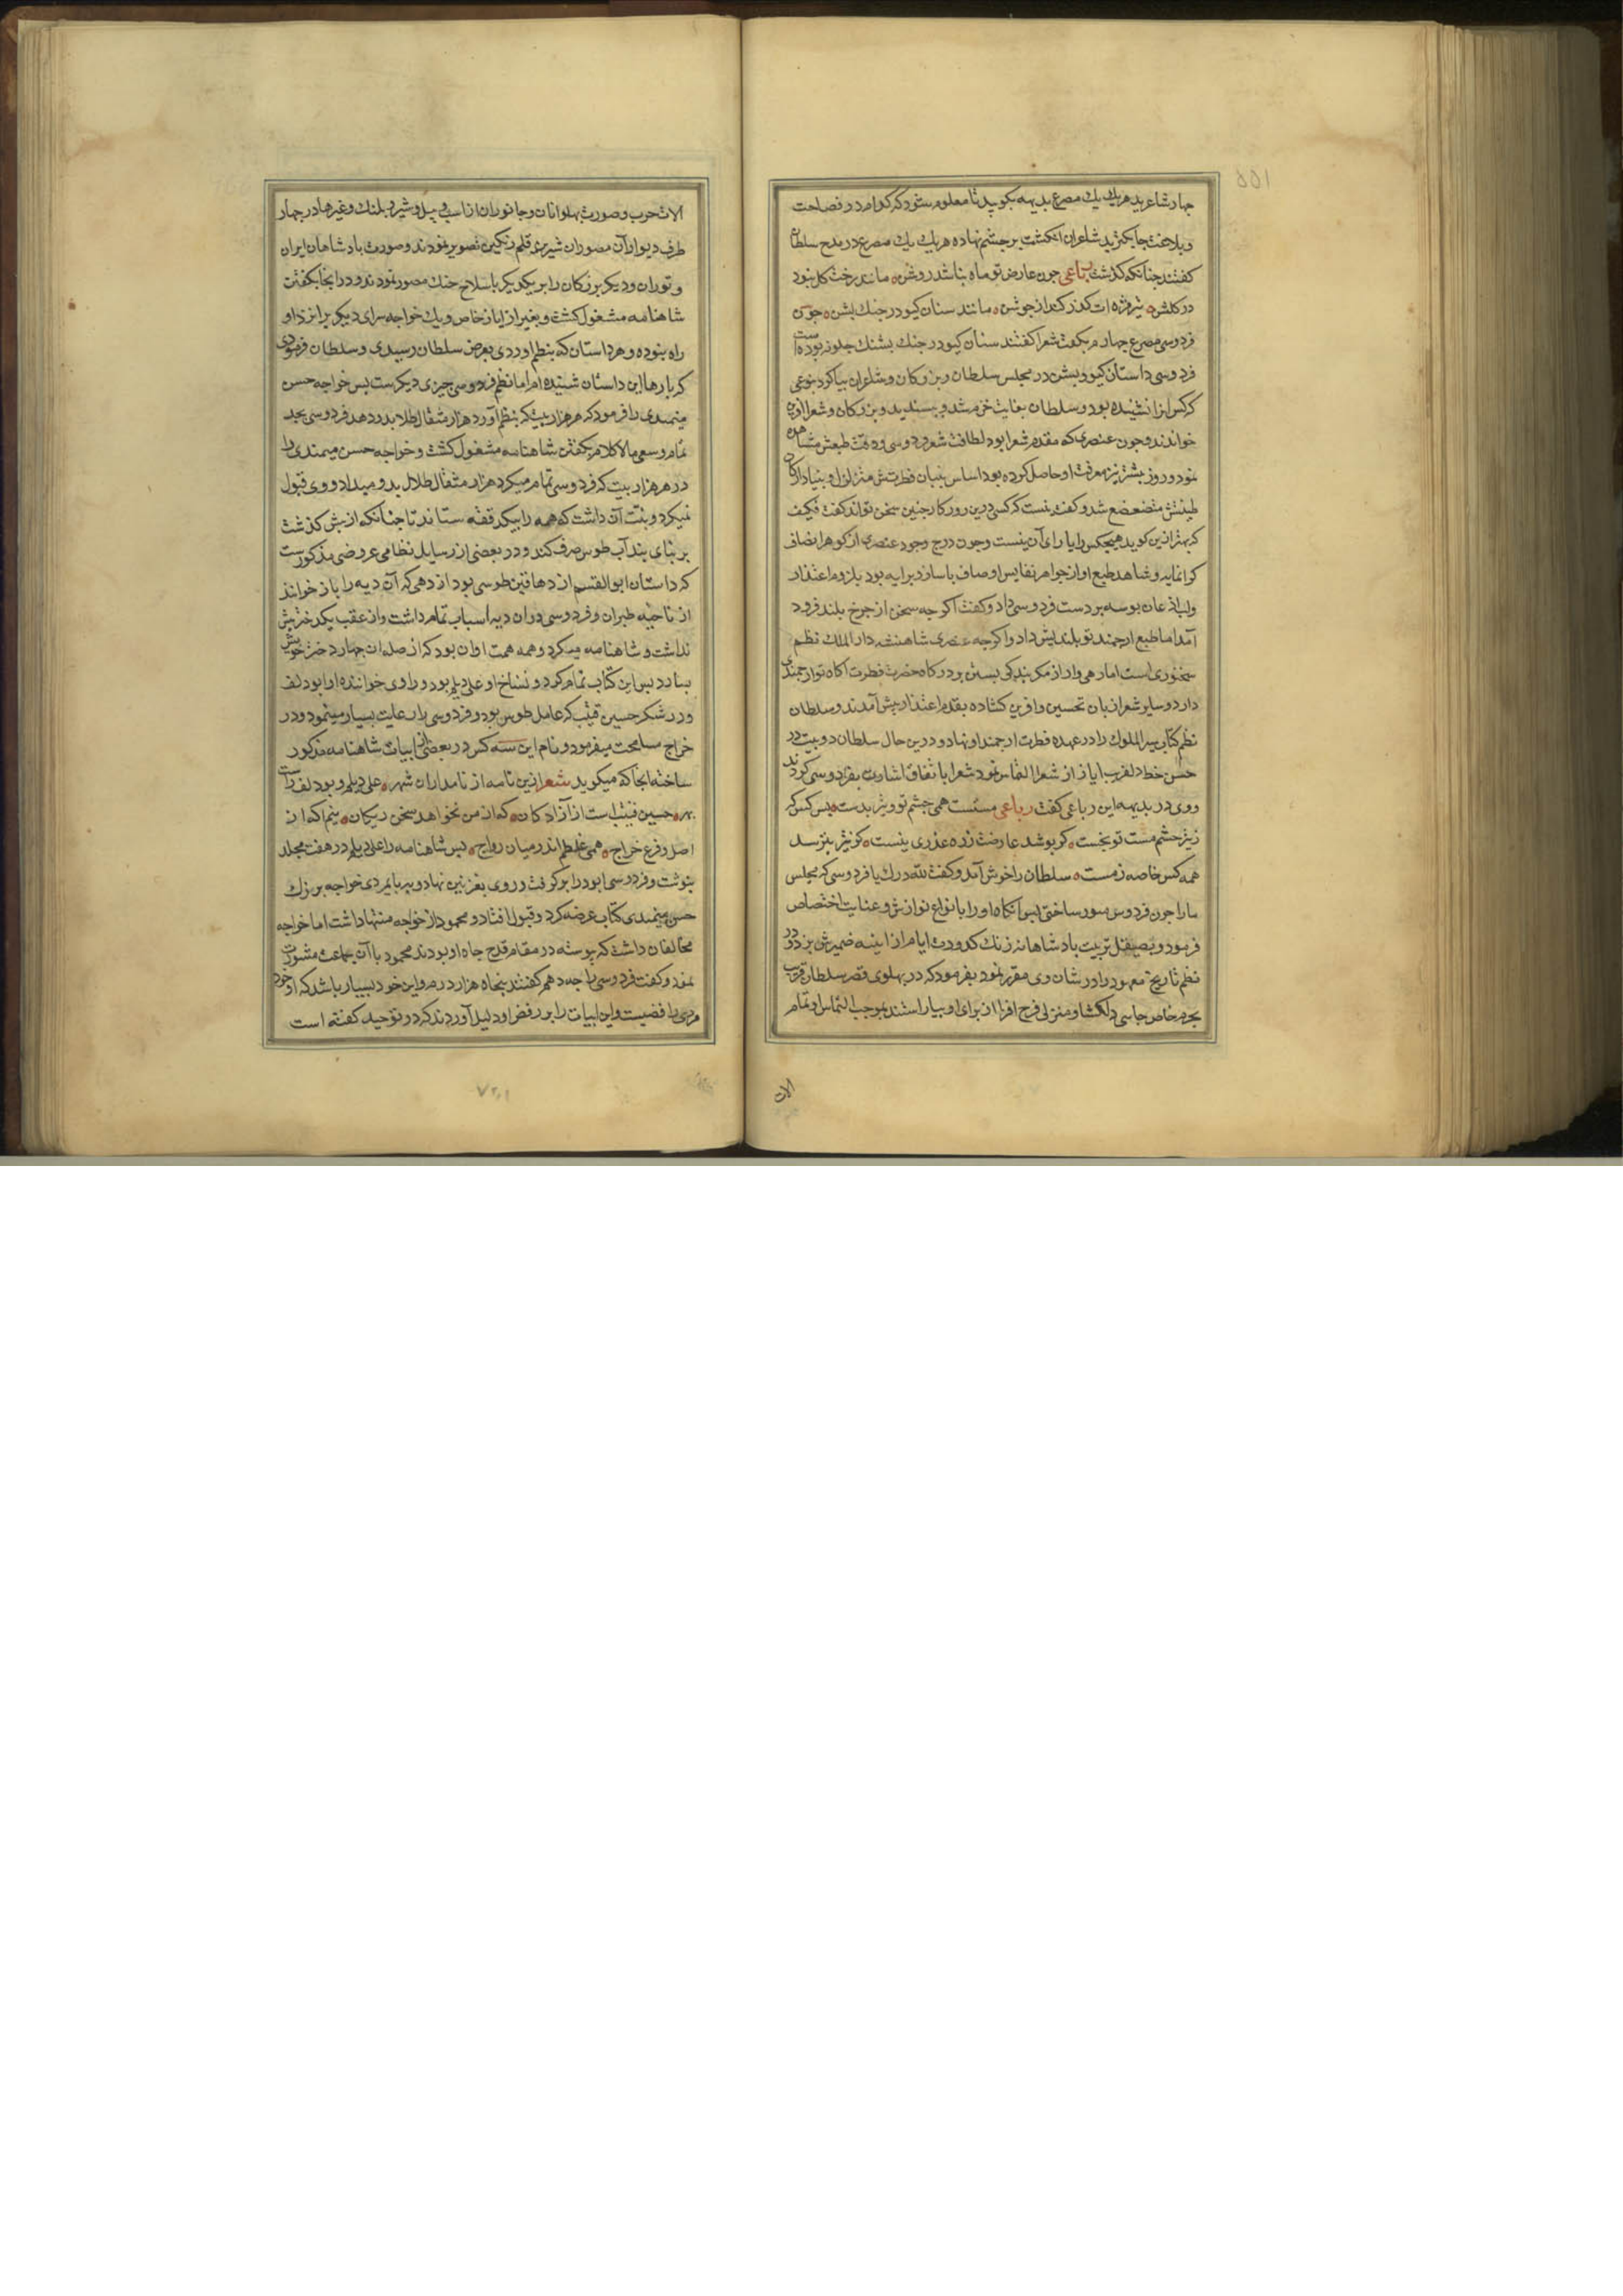 چهار شاعرید هریك یك مصرع بدیهه بکویید تا معلوم شود که کدام در فصاحت
و بلاغت چابکترید شاعران انکشت بر چشم نهاده هریك یك مصرع در مدح سلطان
کفتند چنانکه کذشت رباعی چون عارض تو ماه نباشد روشن مانند رخت کل نبود
در کلشن مژه ات کذر کند از جوشن مانند سنان کیو در جنك پشن چون
فردوسی مصرع چهارم بکفت شعرا کفتند سنان کیو در جنك پشنك چکونه بوده است
فردوسی داستان کیو و پشن در مجلس سلطان و بزرکان و شاعران بیا کرد بنوعی
که کس انرا نشنیده بود و سلطان بغایت خرم شد و پسندید و بزرکان و شعرا افرین
خواندند و چون عنصری که مقدم شعرا بود لطافت شعر فردوسی و دقت طبعش مشاهده
نمود و روز پیشتر نیز معرفت او حاصل کرده بود اساس بنیان فطرتش متزلزل و بنیاد ارکان
طینتش متضعضع شد و کفت نیست که کسی درین روزکار چنین سخن تواند کفت فکیف
که بهتر ازین کوید هیچکس را یارای آن نیست و چون درج وجود عنصری از کوهر انصاف
کرانمایه و شاهد طبع او از جواهر نفایس اوصاف با ساز و پیرایه بود بلزوم اعتذار
و لب اذعان بوسه بر دست فردوسی داد و کفت اکرچه سخن از چرخ بلند فرود
آمد اما طبع ارجمند تو بلندیش داد و اکرچه عنصری شاهنشه دار الملك نظم
سخنوری است اما رهی وار از کمر بندکی بستن بدرکاه حضرت فطرت اکاه تو ارجمندی
دارد و سایر شعرا زبان تحسین و افرین کشاده بقدم اعتذار پیش آمدند و سلطان
نظم کتاب سیر الملوك را در عهده فطرت ارجمند او نهاد و درین حال سلطان دو بیت در
حسن خط دلفریب ایاز از شعرا التماس نمود شعرا باتفاق اشارت بفردوسی کردند
و وی در بدیهه این رباعی کفت رباعی مستست همی چشم تو و تیر بدست بس کس که
ز تیر چشم مست تو بخست کر پوشد عارضت زره عذری نیست کو تیز بترسد
همه کس خاصه ز مست سلطان را خوش آمد و کفت لله درك یا فردوسی که مجلس
ما را چون فردوس منور ساختی پس انکاه او را بانواع نوازش و عنایت اختصاص
فرمود و بصیقل تربیت پادشاهانه زنك کدورت ایام از اینه ضمیرش بزدود و
نظم تاریخ معهود را در شان وی مقرر نمود بفرمود که در پهلوی قصر سلطان قریب
بحرم خاص جایی دلکشا و منزلی فرح افزا از برای او بیاراستند بموجب التماس او تمام
الات
الات حرب و صورت پهلوانان و جانوران از اسب و پیل و شیر و پلنك و غیرها در چهار
طرف دیوار آن مصوران شیرین قلم رنکین تصویر نمودند و صورت پادشاهان ایران
و توران و دیکر بزرکان را بر یکدیکر با سلاح جنك مصور نمودند و در انجا بکفتن
شاهنامه مشغول کشت و بغیر از ایاز خاص و یك خواجه سرای دیکر برا نزد او
راه نبوده و هر داستان که بنظم اوردی بعرض سلطان رسیدی و سلطان فرمودی
که بارها این داستان شنیده ام اما نظم فردوسی چیزی دیکرست پس خواجه حسن
میمندی را فرمود که هر هزار بیت که بنظم آورد هزار مثقال طلا بدو دهد فردوسی بجد
تمام و سعی مالاکلام بکفتن شاهنامه مشغول کشت و خواجه حسن میمندی را
در هر هزار بیت که فردوسی تمام میکرد هزار مثقال طلا بدو میداد و وی قبول
نمیکرد و نیت آن داشت که همه را بیکدفعه ستاند تا چنانکه از پیش کذشت
بر بنای بند آب طوس صرف کند و در بعضی از رسایل نظامی عروضی مذکورست
که داستان ابوالقسم از دهاقین طوسی بود از دهی که آن دیه را باژ خوانند
از ناحیه طبران و فردوسی در ان دیه اسباب تمام داشت و از عقب یکدختر بیش
نداشت و شاهنامه میکرد و همه همت او ان بود که از صله ان جهاز دختر خویش
بسازد پس این کتاب تمام کرد و نساخ او علی دیلم بود و راوی خواننده او ابو دلف
و در شکر حسین قتیب که عامل طوس بود و فردوسی را رعایت بسیار مینمود و در
خراج مسامحت میفرمود و نام این سه کس در بعضی از ابیات شاهنامه مذکور
ساخته انجا که میکوید شعر ازین نامه از نامداران شهر علی دیلم و بودلف راست
بهر حسین قتیب است از آزادکان که از من نخواهد سخن رایکان نیم اکه از
اصل و فرع خراج همی غلطم اندر میان رواج پس شاهنامه را علی دیلم در هفت مجلد
بنوشت و فردوسی ابودلف را برکرفت و روی بغزنین نهاد و بپایمردی خواجه بزرك
حسن میمندی کتاب عرضه کرد و قبول افتاد و محمود از خواجه منتها داشت اما خواجه
مخالفان داشت که پیوسته در مقام قدح جاه او بودند محمود با آن جماعت مشورت
نمود و کفت فردوسی را چه دهم کفتند پنجاه هزار درم و این خود بسیار باشد که او خود
مردی رافضیست و این ابیات را بر رفض او دلیل آوردند که در توحید کفته است